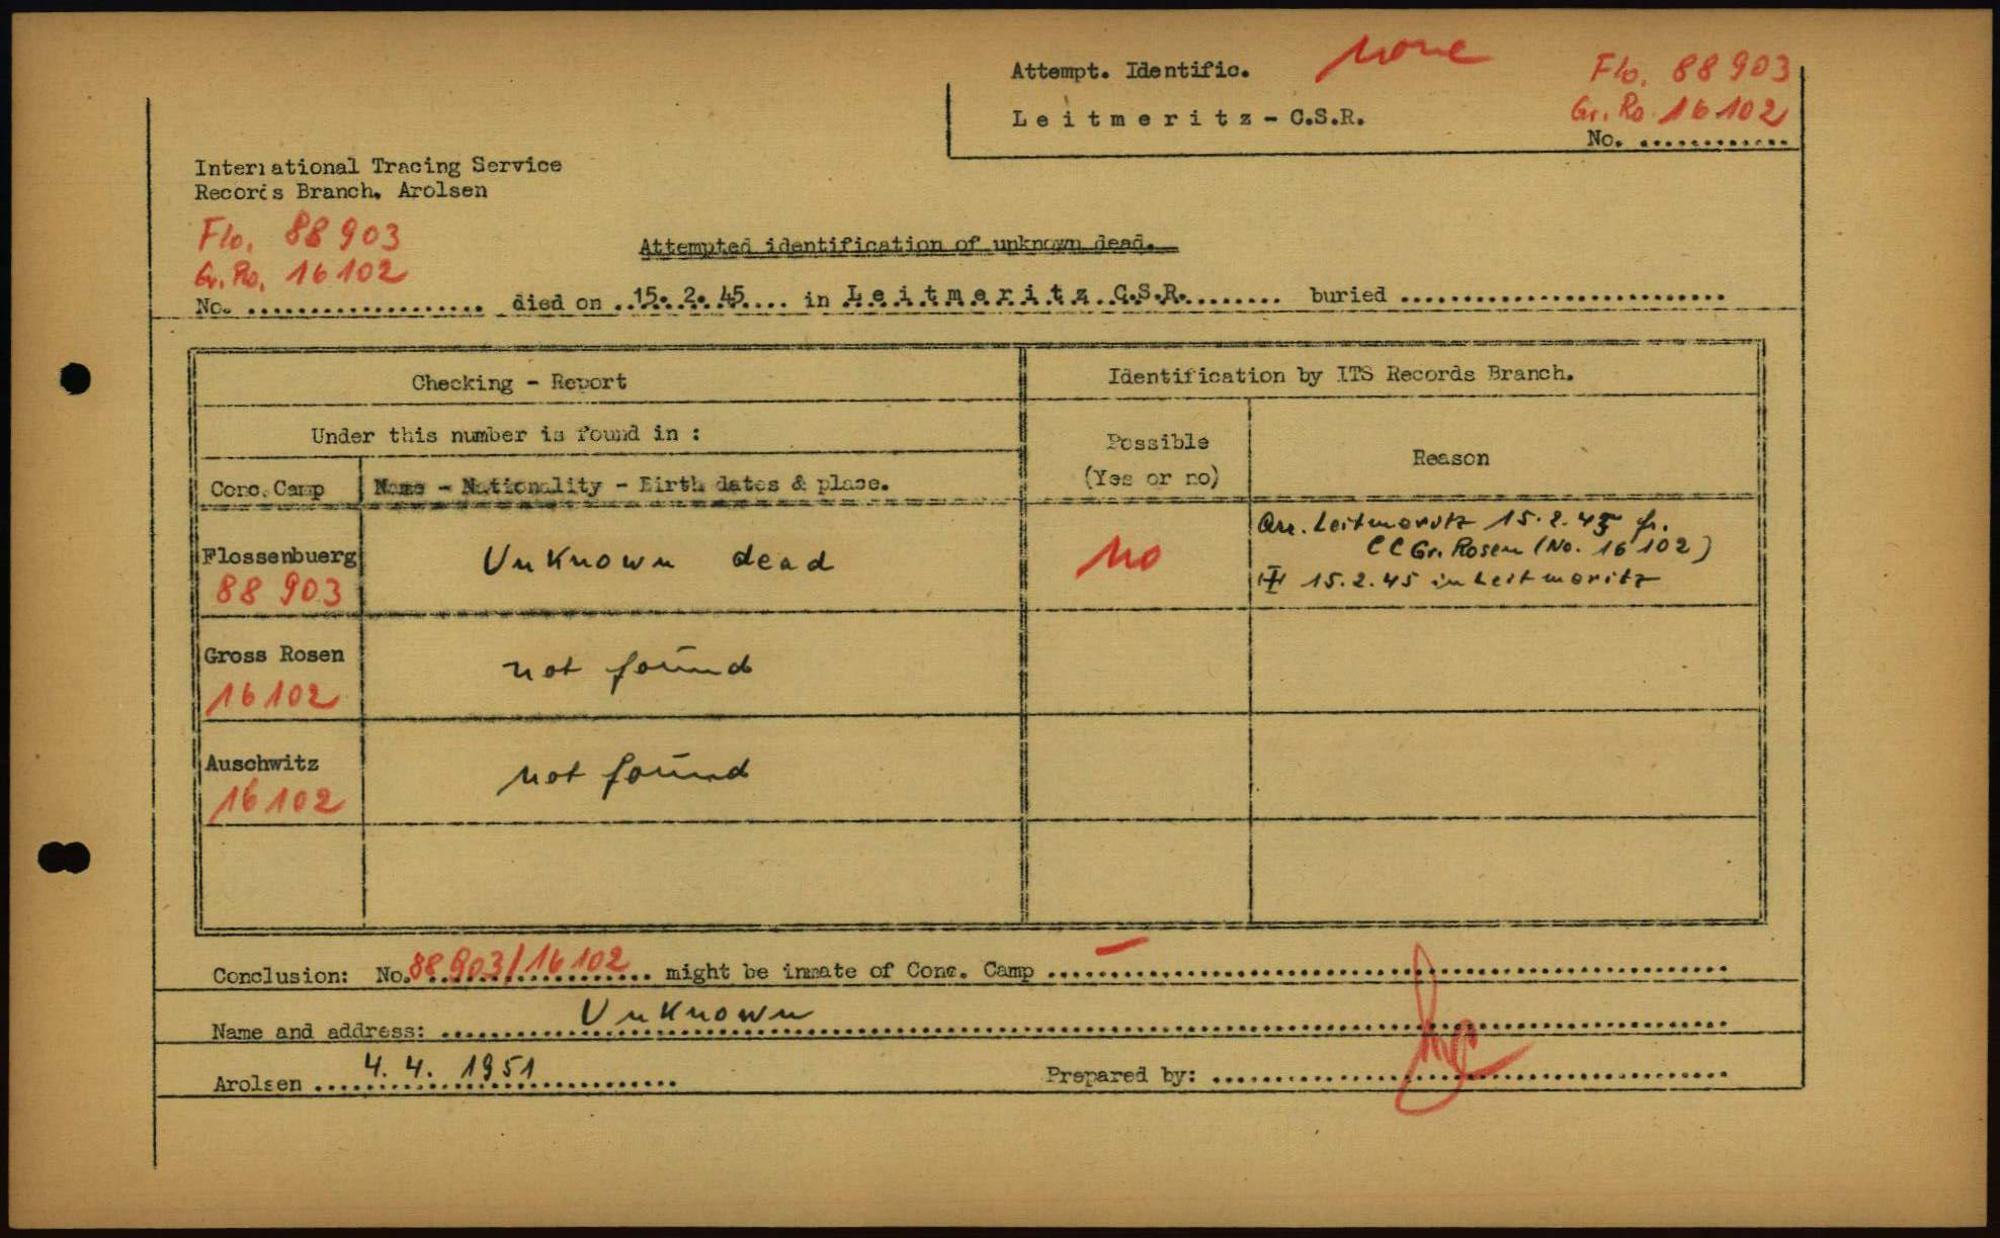 Attempt. Identific. none
Flo. 88 903
Leitmeritz - C.S.R.
Gr. Ro. 16 102
No. ............
International Tracing Service
Records Branch. Arolsen
Flo. 88 903
Gr. Ro. 16 102
Attempted identification of unknown dead.
No. .................. died on ..15. 2. 45.... in Leitmeritz C.S.R........ buried ........................
Checking - Report
Identification by ITS Records Branch.
Under this number is found in :
Possible
(Yes or no)
Reason
Conc. Camp
Name - Nationality - Birth dates & place.
Flossenbuerg
88 903
Unknown dead
no
Arr. Leitmeritz 15.2.45 fr.
CC Gr. Rosen (No. 16 102)
15.2.45 in Leitmeritz
Gross Rosen
16 102
not found
Auschwitz
16 102
not found
Conclusion: No. 88 903/16 102 .. might be inmate of Conc. Camp – ........................
Name and address: .......... Unknown ........................
Arolsen .... 4. 4. 1951 ............
Prepared by: ........................